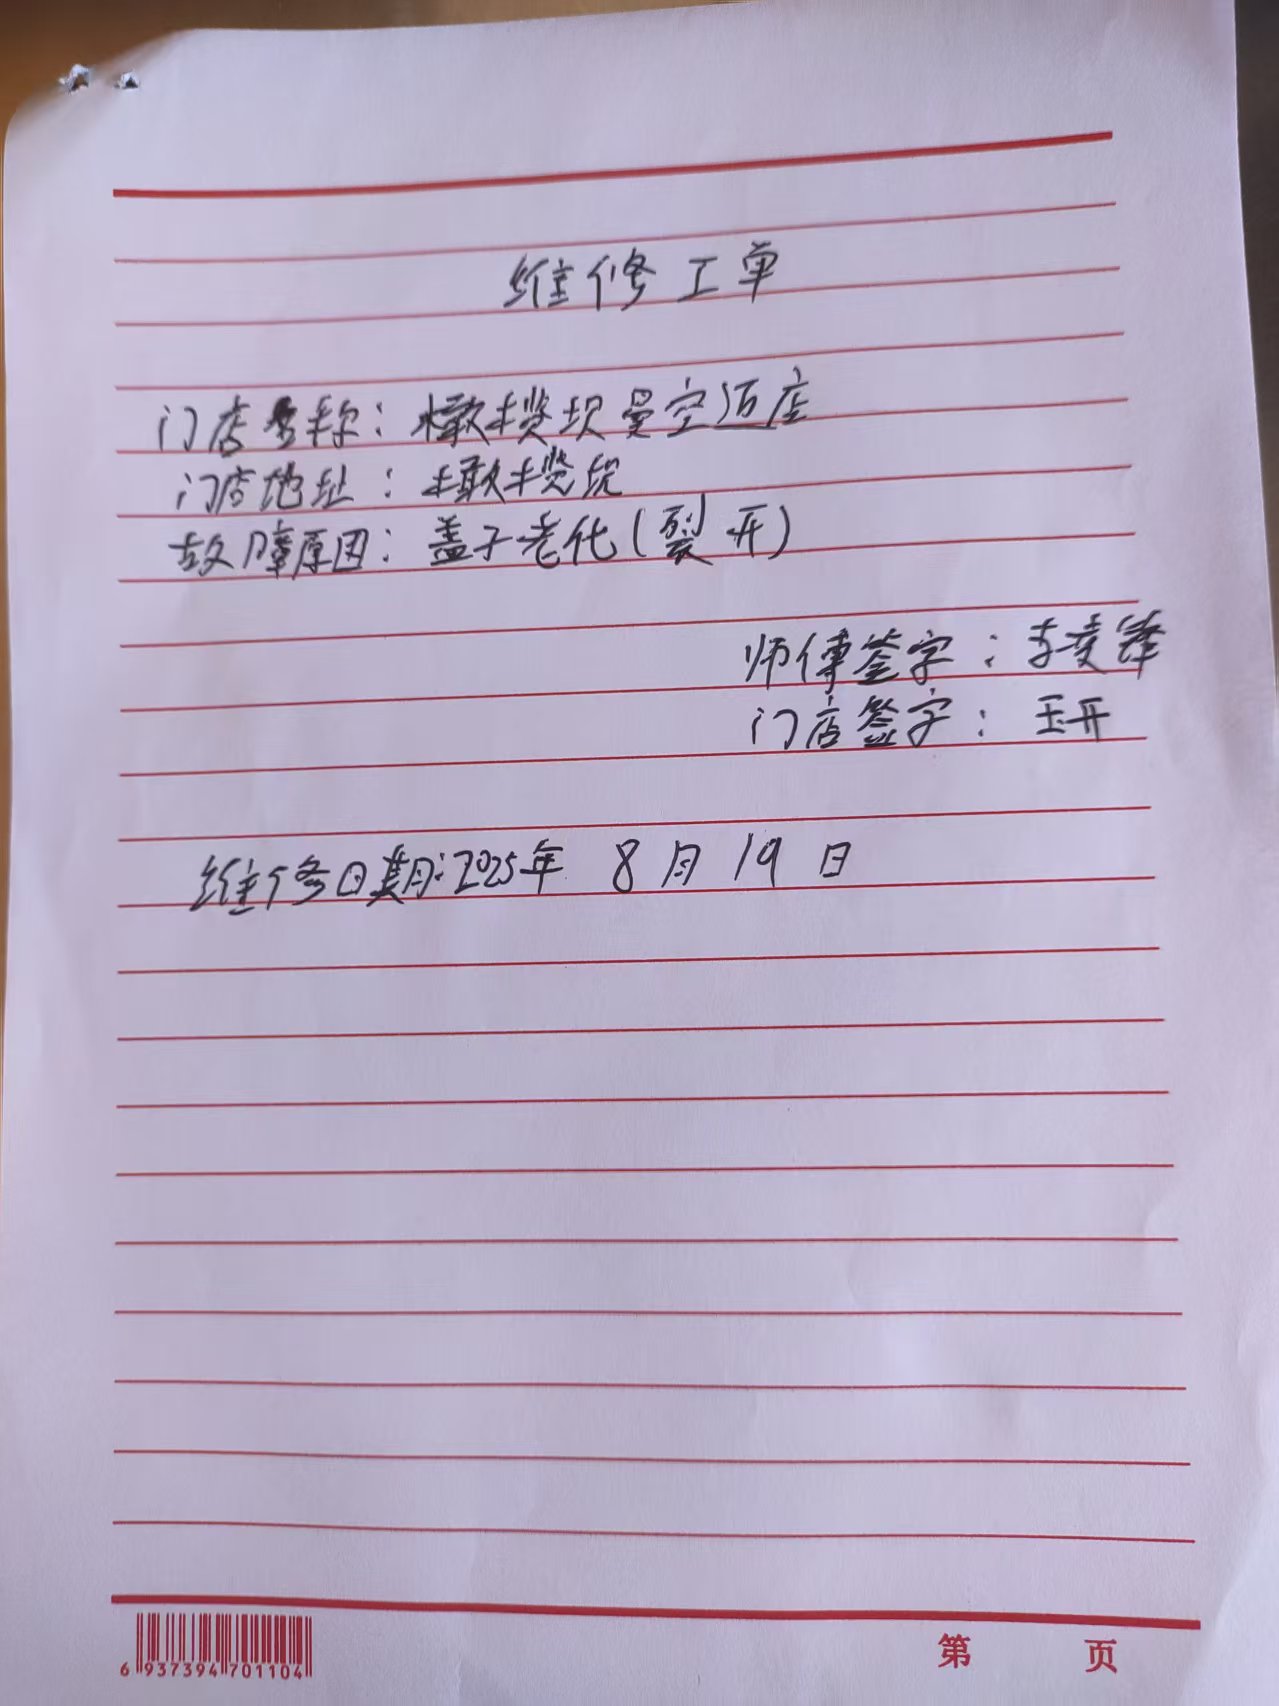 维修工单
门店名称：橄榄坝曼空迈店
门店地址：橄榄坝
故障原因：盖子老化（裂开）
师傅签字：李凌锋
门店签字：玉开
维修日期：2025年 8月 19 日
6 937394 701104
第 页